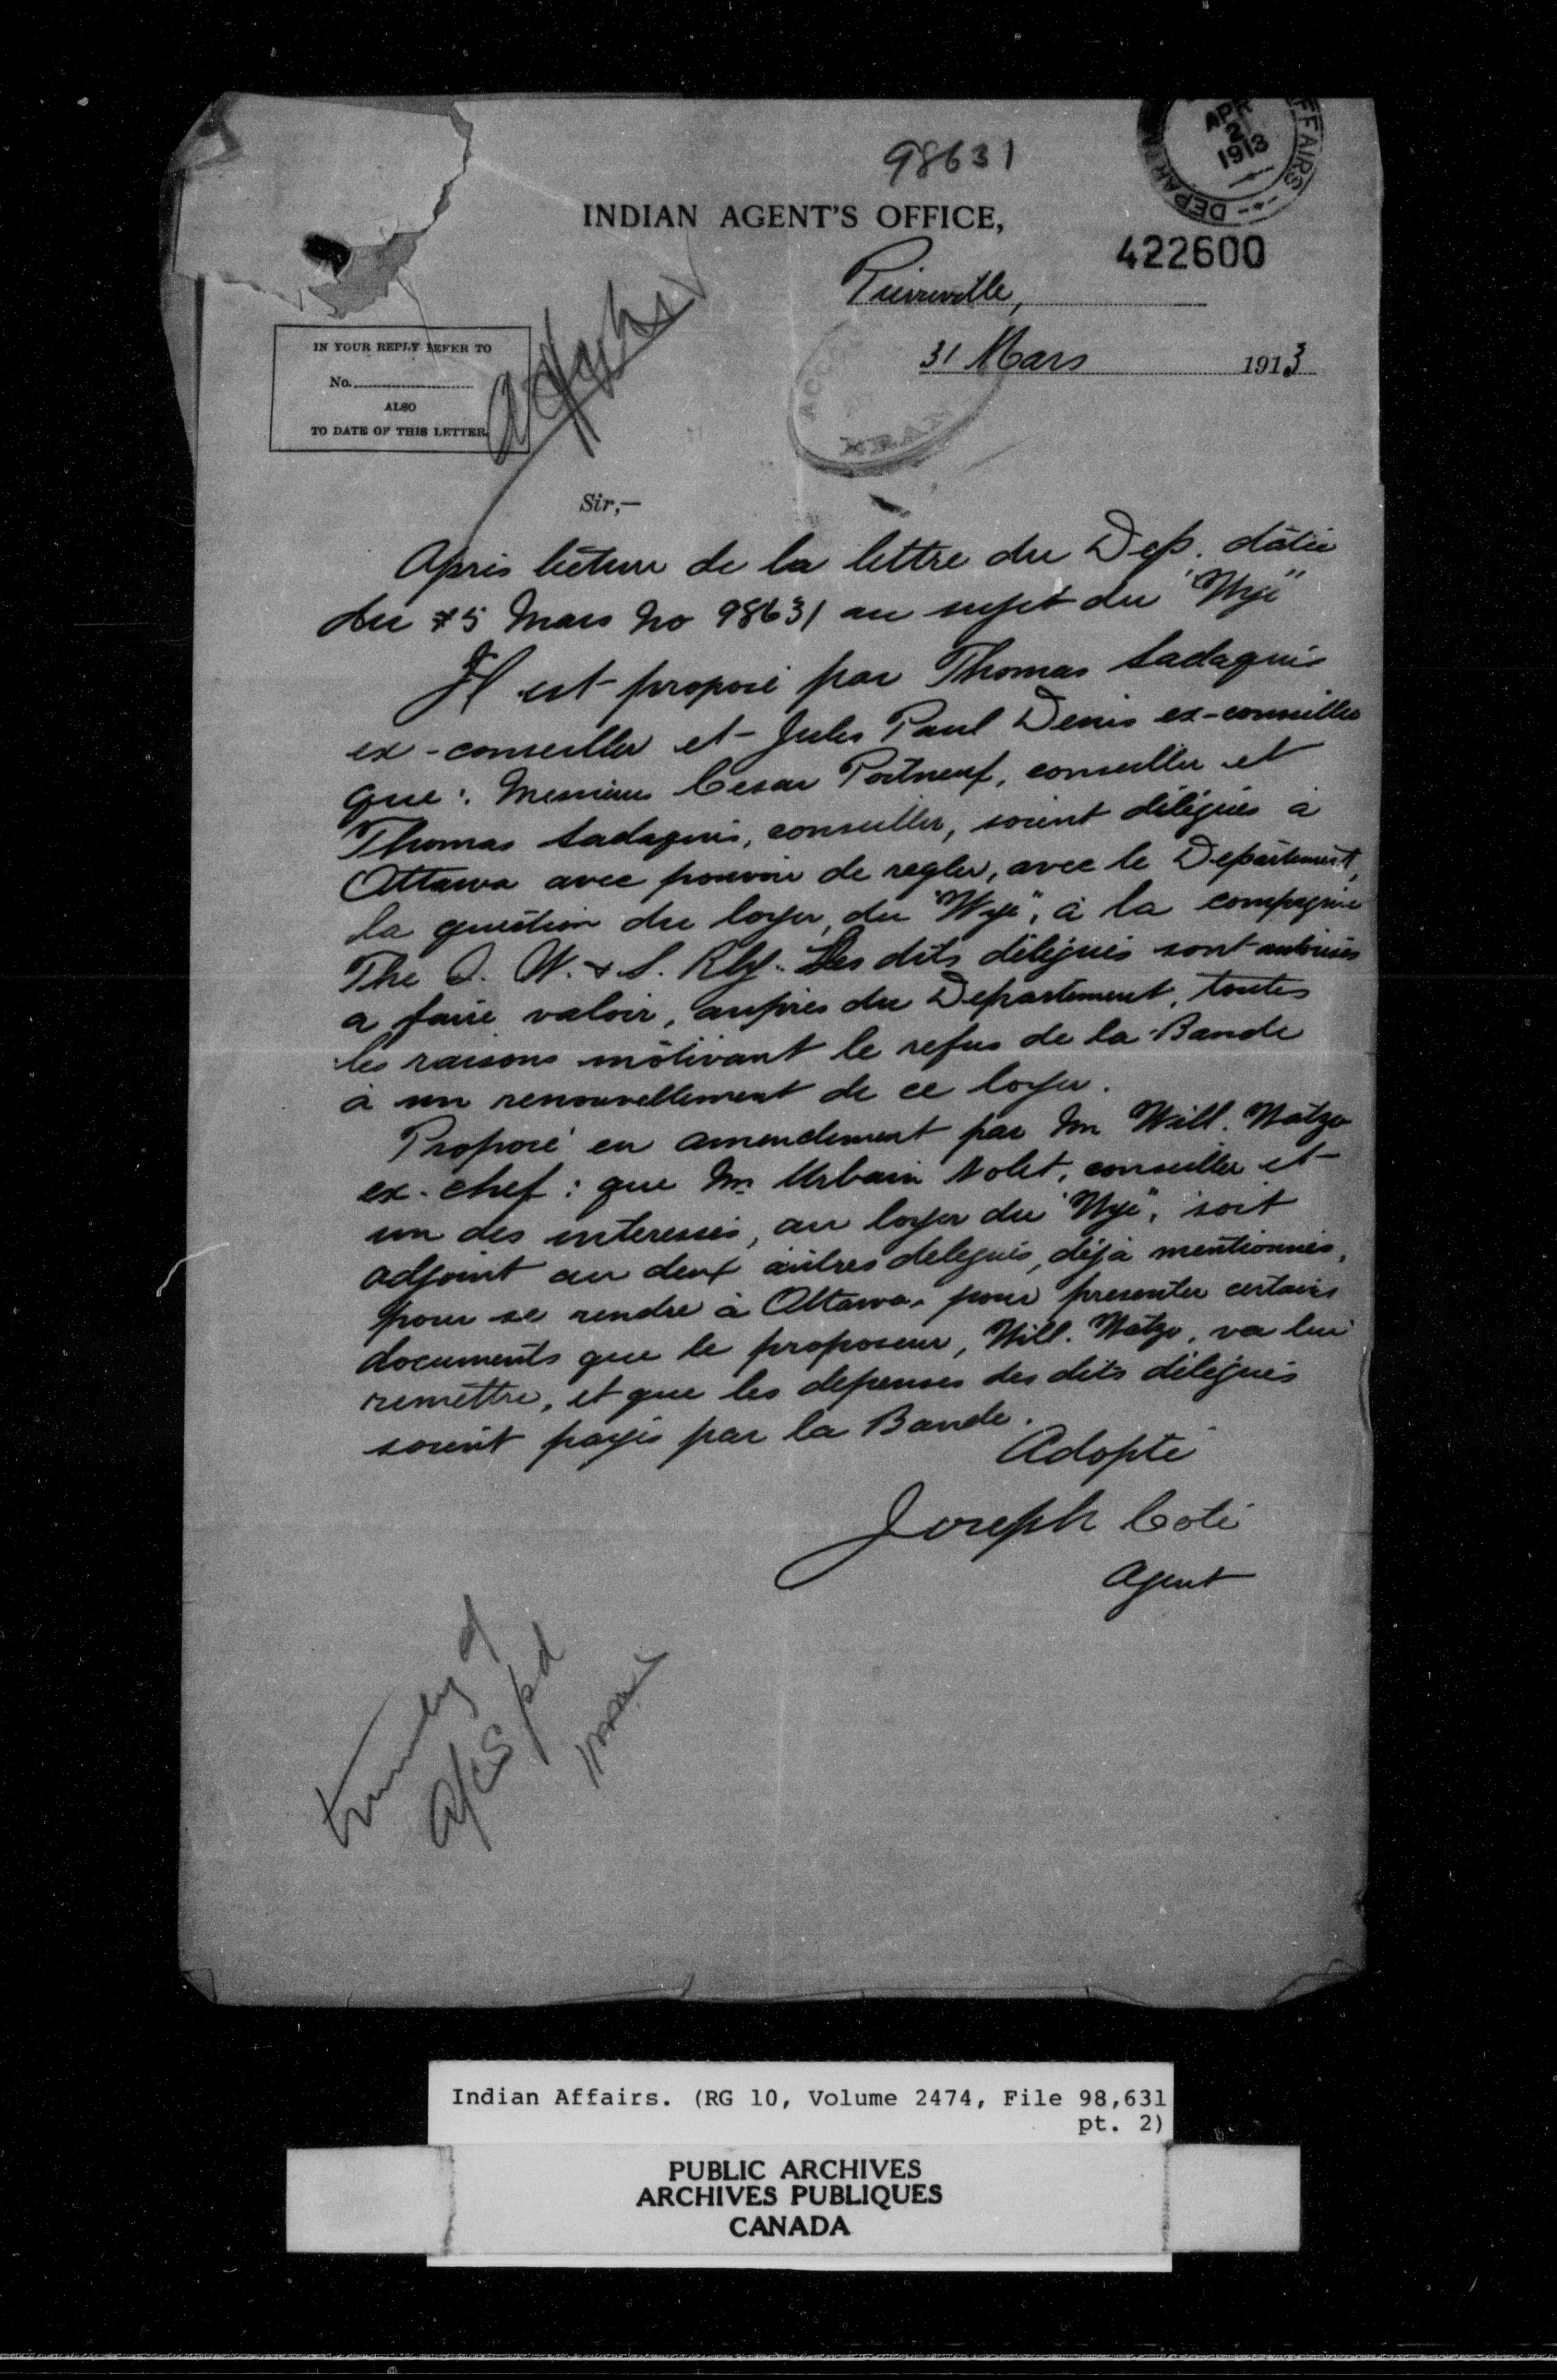 98631
APR
2
1913
DEPAR
FFAIRS
INDIAN AGENT'S OFFICE,
422600
Pierreville,
31 Mars 1913
IN YOUR REPLY REFER TO
No.
ALSO
TO DATE OF THIS LETTER.
Sir,—
Après lecture de la lettre du Dep. dâtée
du 25 Mars No 98631 au sujet du "Wye"
Il est proposé par Thomas Sadaquis
ex-conseiller et Jules Paul Denis ex-conseiller
que: Messieurs Cesar Portneuf, conseiller et
Thomas Sadaquis, conseiller, soient délégués à
Ottawa avec pouvoir de regler, avec le Departement,
la question du loyer, du "Wye", à la compagnie
The Q. M. & S. Rly. Les dits délégués sont autorisés
a faire valoir, auprès du Departement, toutes
les raisons mōtivant le refus de la Bande
à un renouvellement de ce loyer.
Proposé en amendement par Mr Will. Watzo
ex-chef: que Mr Urbain Nolet, conseiller et
un des interessés, au loyer du "Wye", soit
adjoint au deux autres delegués, déja mentionnés,
pour se rendre à Ottawa, pour presenter certains
documents que le proposeur, Will. Watzo, va lui
remettre, et que les depenses des dits délégués
soient payés par la Bande.
Adopté
Joseph Coté
Agent
Indian Affairs. (RG 10, Volume 2474, File 98,631
pt. 2)
PUBLIC ARCHIVES
ARCHIVES PUBLIQUES
CANADA